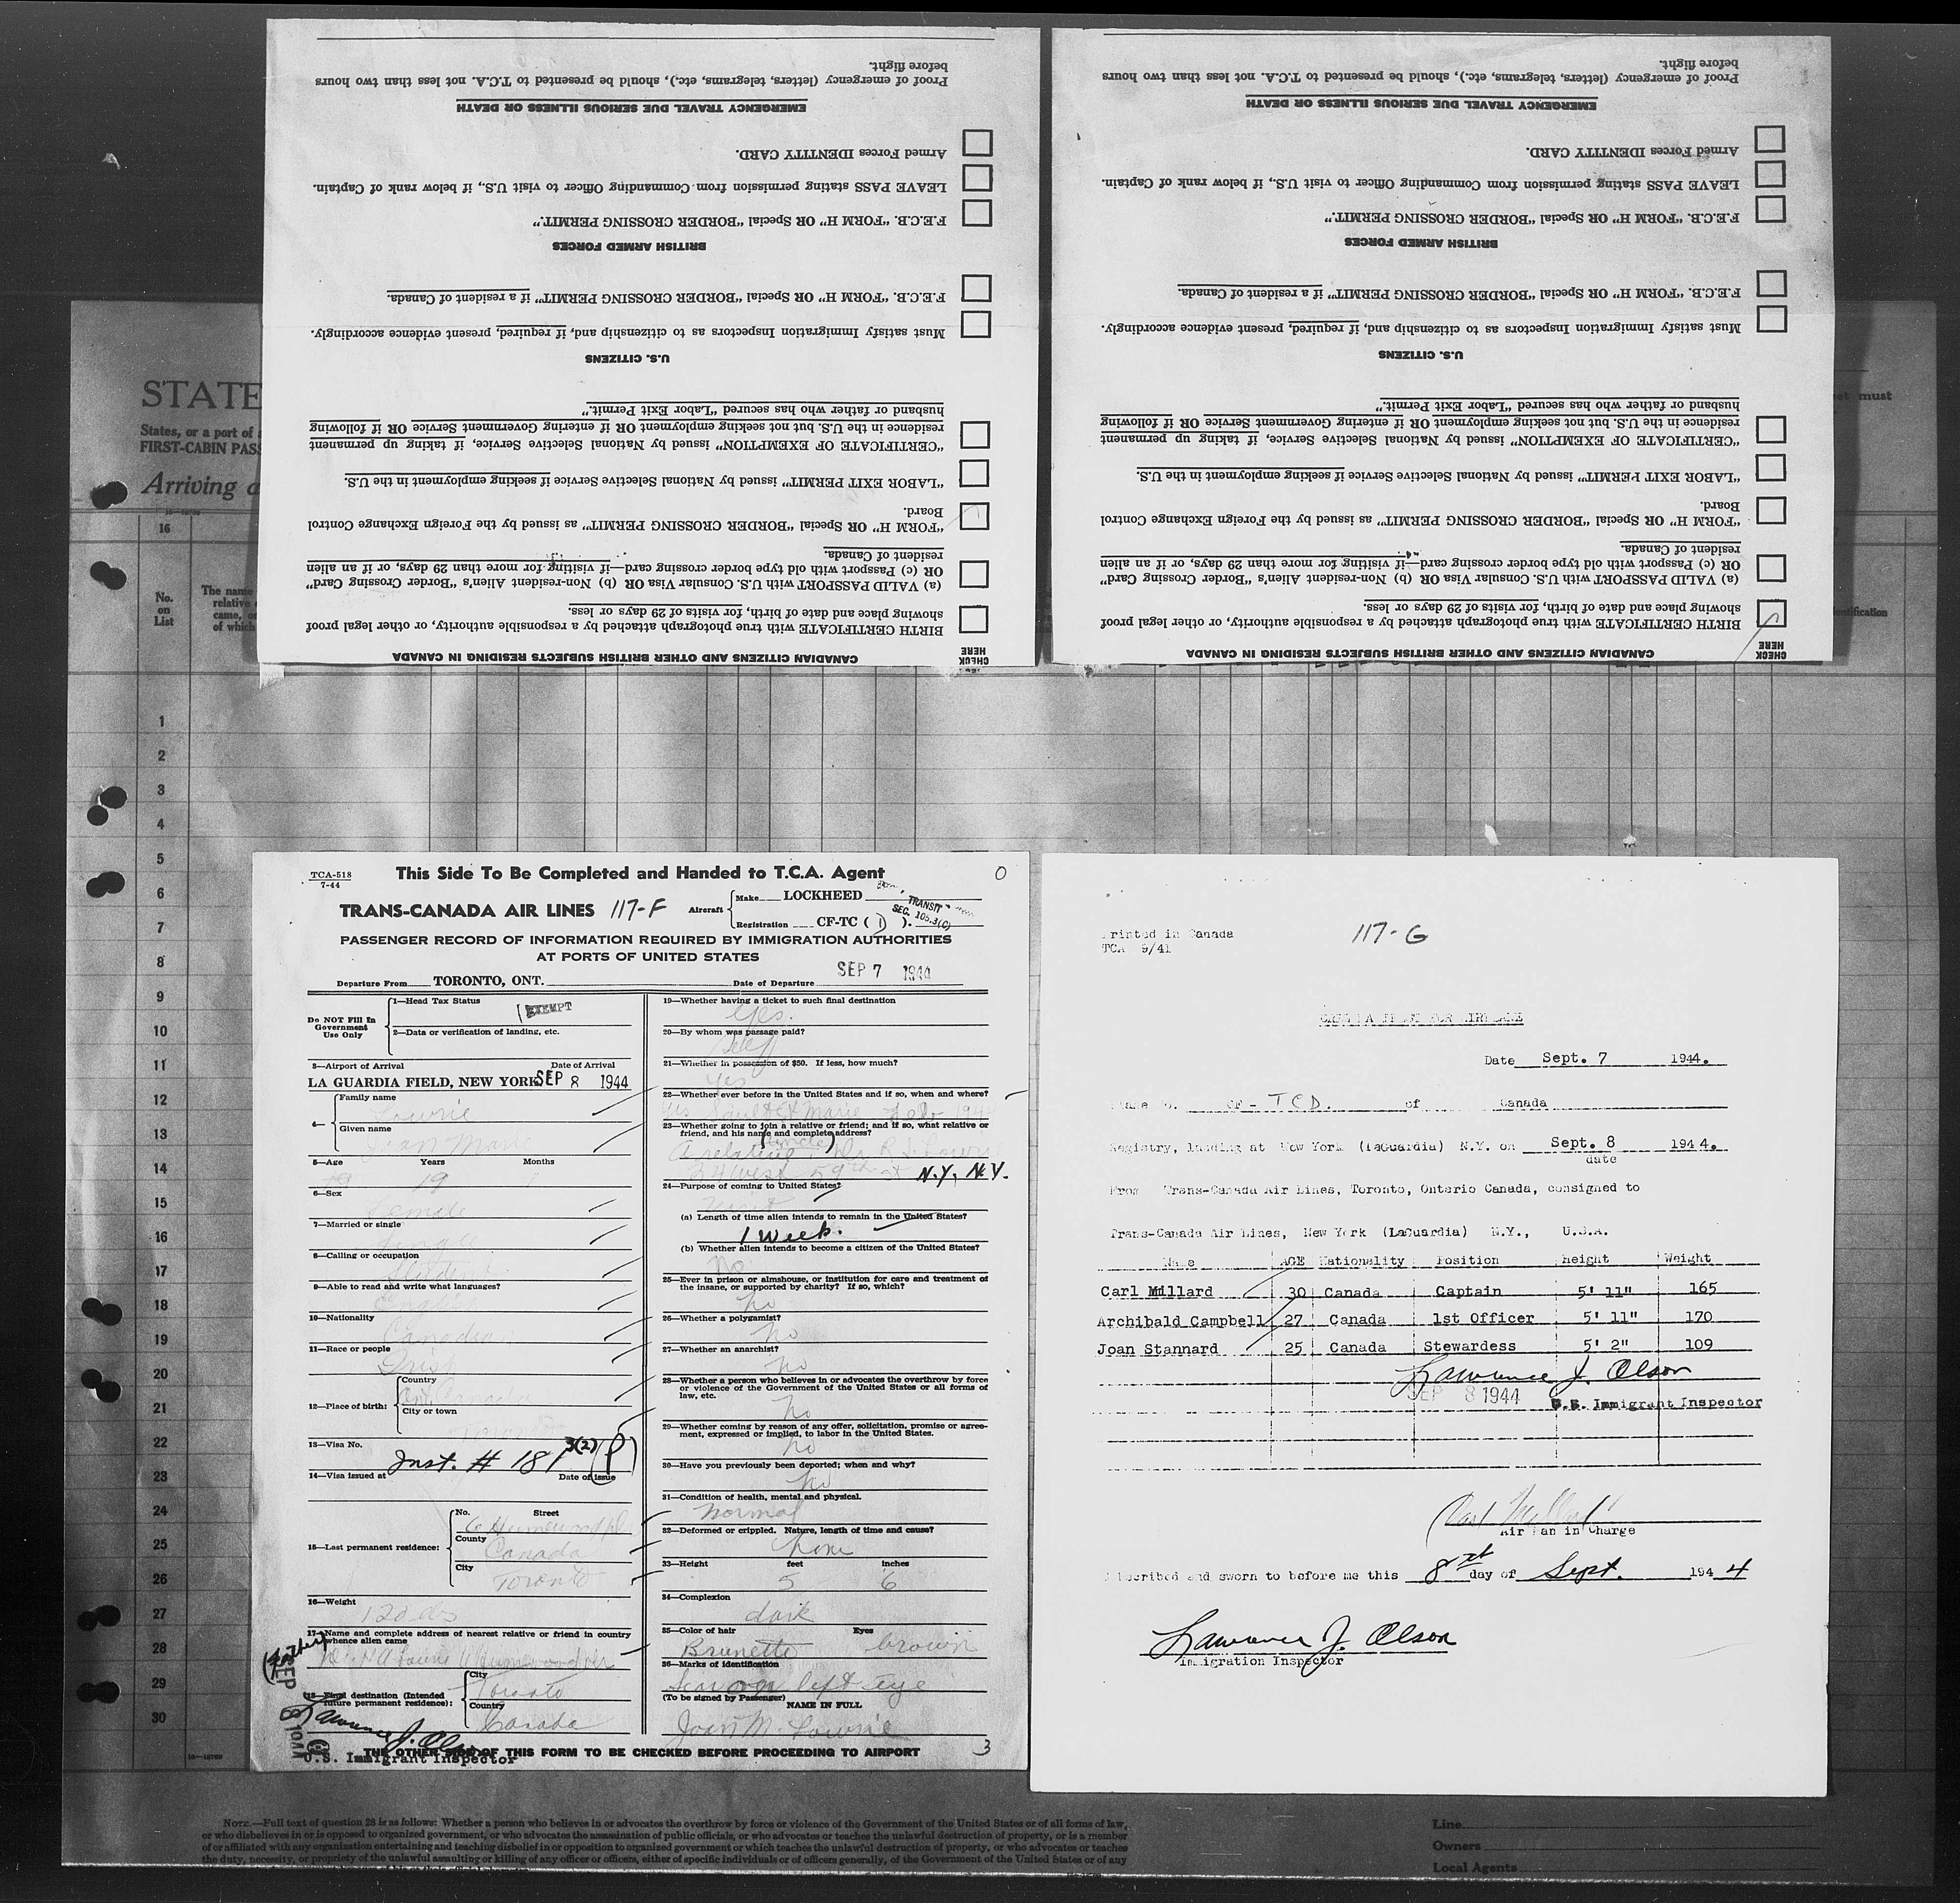 before flight.
Proof of emergency (letters, telegrams, etc.), should be presented to T.C.A. not less than two hours
EMERGENCY TRAVEL DUE SERIOUS ILLNESS OR DEATH
Armed Forces IDENTITY CARD.
LEAVE PASS stating permission from Commanding Officer to visit U.S., if below rank of Captain.
F.E.C.B. "FORM H" OR Special "BORDER CROSSING PERMIT."
BRITISH ARMED FORCES
F.E.C.B. "FORM H" OR Special "BORDER CROSSING PERMIT" if a resident of Canada.
Must satisfy Immigration Inspectors as to citizenship and, if required, present evidence accordingly.
U.S. CITIZENS
husband or father who has secured "Labor Exit Permit."
residence in the U.S. but not seeking employment OR if entering Government Service OR if following
"CERTIFICATE OF EXEMPTION" issued by National Selective Service, if taking up permanent
"LABOR EXIT PERMIT" issued by National Selective Service if seeking employment in the U.S.
Board.
"FORM H" OR Special "BORDER CROSSING PERMIT" as issued by the Foreign Exchange Control
resident of Canada.
OR (c) Passport with old type border crossing card—if visiting for more than 29 days, or if an alien
(a) VALID PASSPORT with U.S. Consular Visa OR (b) Non-resident Alien's "Border Crossing Card"
showing place and date of birth, for visits of 29 days or less.
BIRTH CERTIFICATE with true photograph attached by a responsible authority, or other legal proof
CANADIAN CITIZENS AND OTHER BRITISH SUBJECTS RESIDING IN CANADA
CHECK HERE
before flight.
Proof of emergency (letters, telegrams, etc.), should be presented to T.C.A. not less than two hours
EMERGENCY TRAVEL DUE SERIOUS ILLNESS OR DEATH
Armed Forces IDENTITY CARD.
LEAVE PASS stating permission from Commanding Officer to visit U.S., if below rank of Captain.
F.E.C.B. "FORM H" OR Special "BORDER CROSSING PERMIT."
BRITISH ARMED FORCES
F.E.C.B. "FORM H" OR Special "BORDER CROSSING PERMIT" if a resident of Canada.
Must satisfy Immigration Inspectors as to citizenship and, if required, present evidence accordingly.
U.S. CITIZENS
husband or father who has secured "Labor Exit Permit."
residence in the U.S. but not seeking employment OR if entering Government Service OR if following
"CERTIFICATE OF EXEMPTION" issued by National Selective Service, if taking up permanent
"LABOR EXIT PERMIT" issued by National Selective Service if seeking employment in the U.S.
Board.
"FORM H" OR Special "BORDER CROSSING PERMIT" as issued by the Foreign Exchange Control
resident of Canada.
OR (c) Passport with old type border crossing card—if visiting for more than 29 days, or if an alien
(a) VALID PASSPORT with U.S. Consular Visa OR (b) Non-resident Alien's "Border Crossing Card"
showing place and date of birth, for visits of 29 days or less.
BIRTH CERTIFICATE with true photograph attached by a responsible authority, or other legal proof
CANADIAN CITIZENS AND OTHER BRITISH SUBJECTS RESIDING IN CANADA
CHECK HERE
STATE
States, or a port of
FIRST-CABIN PASS
Arriving
16
No. on List
The name
relative
came, or
of which
must
1
2
3
4
5
6
7
8
9
10
11
12
13
14
15
16
17
18
19
20
21
22
23
24
25
26
27
28
29
30
TCA-518
7-44
This Side To Be Completed and Handed to T.C.A. Agent
0
TRANS-CANADA AIR LINES 117-F
Aircraft
Make LOCKHEED
Registration CF-TC ( D ).
TRANSIT
SEC. 105.3(C)
PASSENGER RECORD OF INFORMATION REQUIRED BY IMMIGRATION AUTHORITIES
AT PORTS OF UNITED STATES
Departure From TORONTO, ONT. Date of Departure SEP 7 1944
Do NOT Fill In Government Use Only
1—Head Tax Status EXEMPT
2—Data or verification of landing, etc.
3—Airport of Arrival Date of Arrival
LA GUARDIA FIELD, NEW YORK SEP 8 1944
4—
Family name
Lowrie
Given name
Joan Marie
5—Age Years Months
19
6—Sex
Female
7—Married or single
Single
8—Calling or occupation
Student
9—Able to read and write what languages?
10—Nationality
Canadian
11—Race or people
Irish
12—Place of birth:
Country
Canada
City or town
13—Visa No.
Inst. # 181 3(2) (P)
14—Visa issued at Date of issue
15—Last permanent residence:
No. Street
6 Humewood
County
Canada
City
Toronto
16—Weight
120 lbs
17—Name and complete address of nearest relative or friend in country
whence alien came
(Father)
18—Final destination (Intended
future permanent residence):
City
Toronto
Country
Canada
SEP 8 1944
Lawrence J. Olson
U.S. Immigrant Inspector
19—Whether having a ticket to such final destination
Yes.
20—By whom was passage paid?
Self
21—Whether in possession of $50. If less, how much?
Yes
22—Whether ever before in the United States and if so, when and where?
Yes Sault St Marie Feb
23—Whether going to join a relative or friend; and if so, what relative or
friend, and his name and complete address?
(Uncle)
A relative. Dr. R Lowrie
24 West 59th st N.Y, N.Y.
24—Purpose of coming to United States?
Visit
(a) Length of time alien intends to remain in the United States?
1 Week.
(b) Whether alien intends to become a citizen of the United States?
No
25—Ever in prison or almshouse, or institution for care and treatment of
the insane, or supported by charity? If so, which?
no
26—Whether a polygamist?
no
27—Whether an anarchist?
no
28—Whether a person who believes in or advocates the overthrow by force
or violence of the Government of the United States or all forms of
law, etc.
no
29—Whether coming by reason of any offer, solicitation, promise or agree-
ment, expressed or implied, to labor in the United States.
no
30—Have you previously been deported; when and why?
no
31—Condition of health, mental and physical.
normal
32—Deformed or crippled. Nature, length of time and cause?
none
33—Height feet inches
5 6
34—Complexion
dark
35—Color of hair Eyes
Brunette brown
36—Marks of identification
Scar on left eye
(To be signed by Passenger) NAME IN FULL
Joan M. Lowrie
THE OTHER SIDE OF THIS FORM TO BE CHECKED BEFORE PROCEEDING TO AIRPORT
3
Printed in Canada
TCA 9/41
117-G
Date Sept. 7 1944.
CF - TCD. of Canada
Registry, landing at New York (LaGuardia) N.Y. on Sept. 8 1944.
date
From Trans-Canada Air Lines, Toronto, Ontario Canada, consigned to
Trans-Canada Air Lines, New York (LaGuardia) N.Y., U.S.A.
Name AGE Nationality Position height Weight
Carl Millard 30 Canada Captain 5' 11" 165
Archibald Campbell 27 Canada 1st Officer 5' 11" 170
Joan Stannard 25 Canada Stewardess 5' 2" 109
Lawrence J. Olson
SEP 8 1944
U.S. Immigrant Inspector
Carl Millard
Air Man in Charge
Subscribed and sworn to before me this 8th day of Sept. 1944
Lawrence J. Olson
Immigration Inspector
NOTE.—Full text of question 28 is as follows: Whether a person who believes in or advocates the overthrow by force or violence of the Government of the United States or of all forms of law,
or who disbelieves in or is opposed to organized government, or who advocates the assassination of public officials, or who advocates or teaches the unlawful destruction of property, or is a member
of or affiliated with any organization entertaining and teaching disbelief in or opposition to organized government or which teaches the unlawful destruction of property, or who advocates or teaches
the duty, necessity, or propriety of the unlawful assaulting or killing of any officer or officers, either of specific individuals or of officers generally, of the Government of the United States or of any
Line
Owners
Local Agents